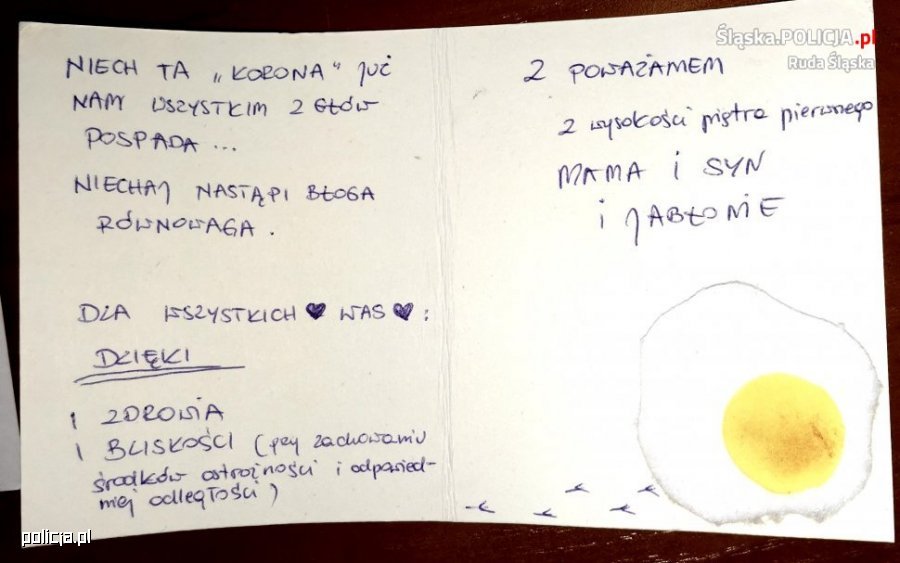 NIECH TA „KORONA" JUŻ
NAM WSZYSTKIM Z GŁÓW
POSPADA...
NIECHAJ NASTĄPI BŁOGA
RÓWNOWAGA.
DLA WSZYSTKICH ♥ WAS ♥:
DZIĘKI
I ZDROWIA
I BLISKOŚCI (przy zachowaniu
środków ostrożności i odpowied-
niej odległości)
Z POWAŻANIEM
z wysokości piętra pierwnego
MAMA i SYN
i JABŁONIE
Śląska.POLICJA.pl
Ruda Śląska
policja.pl